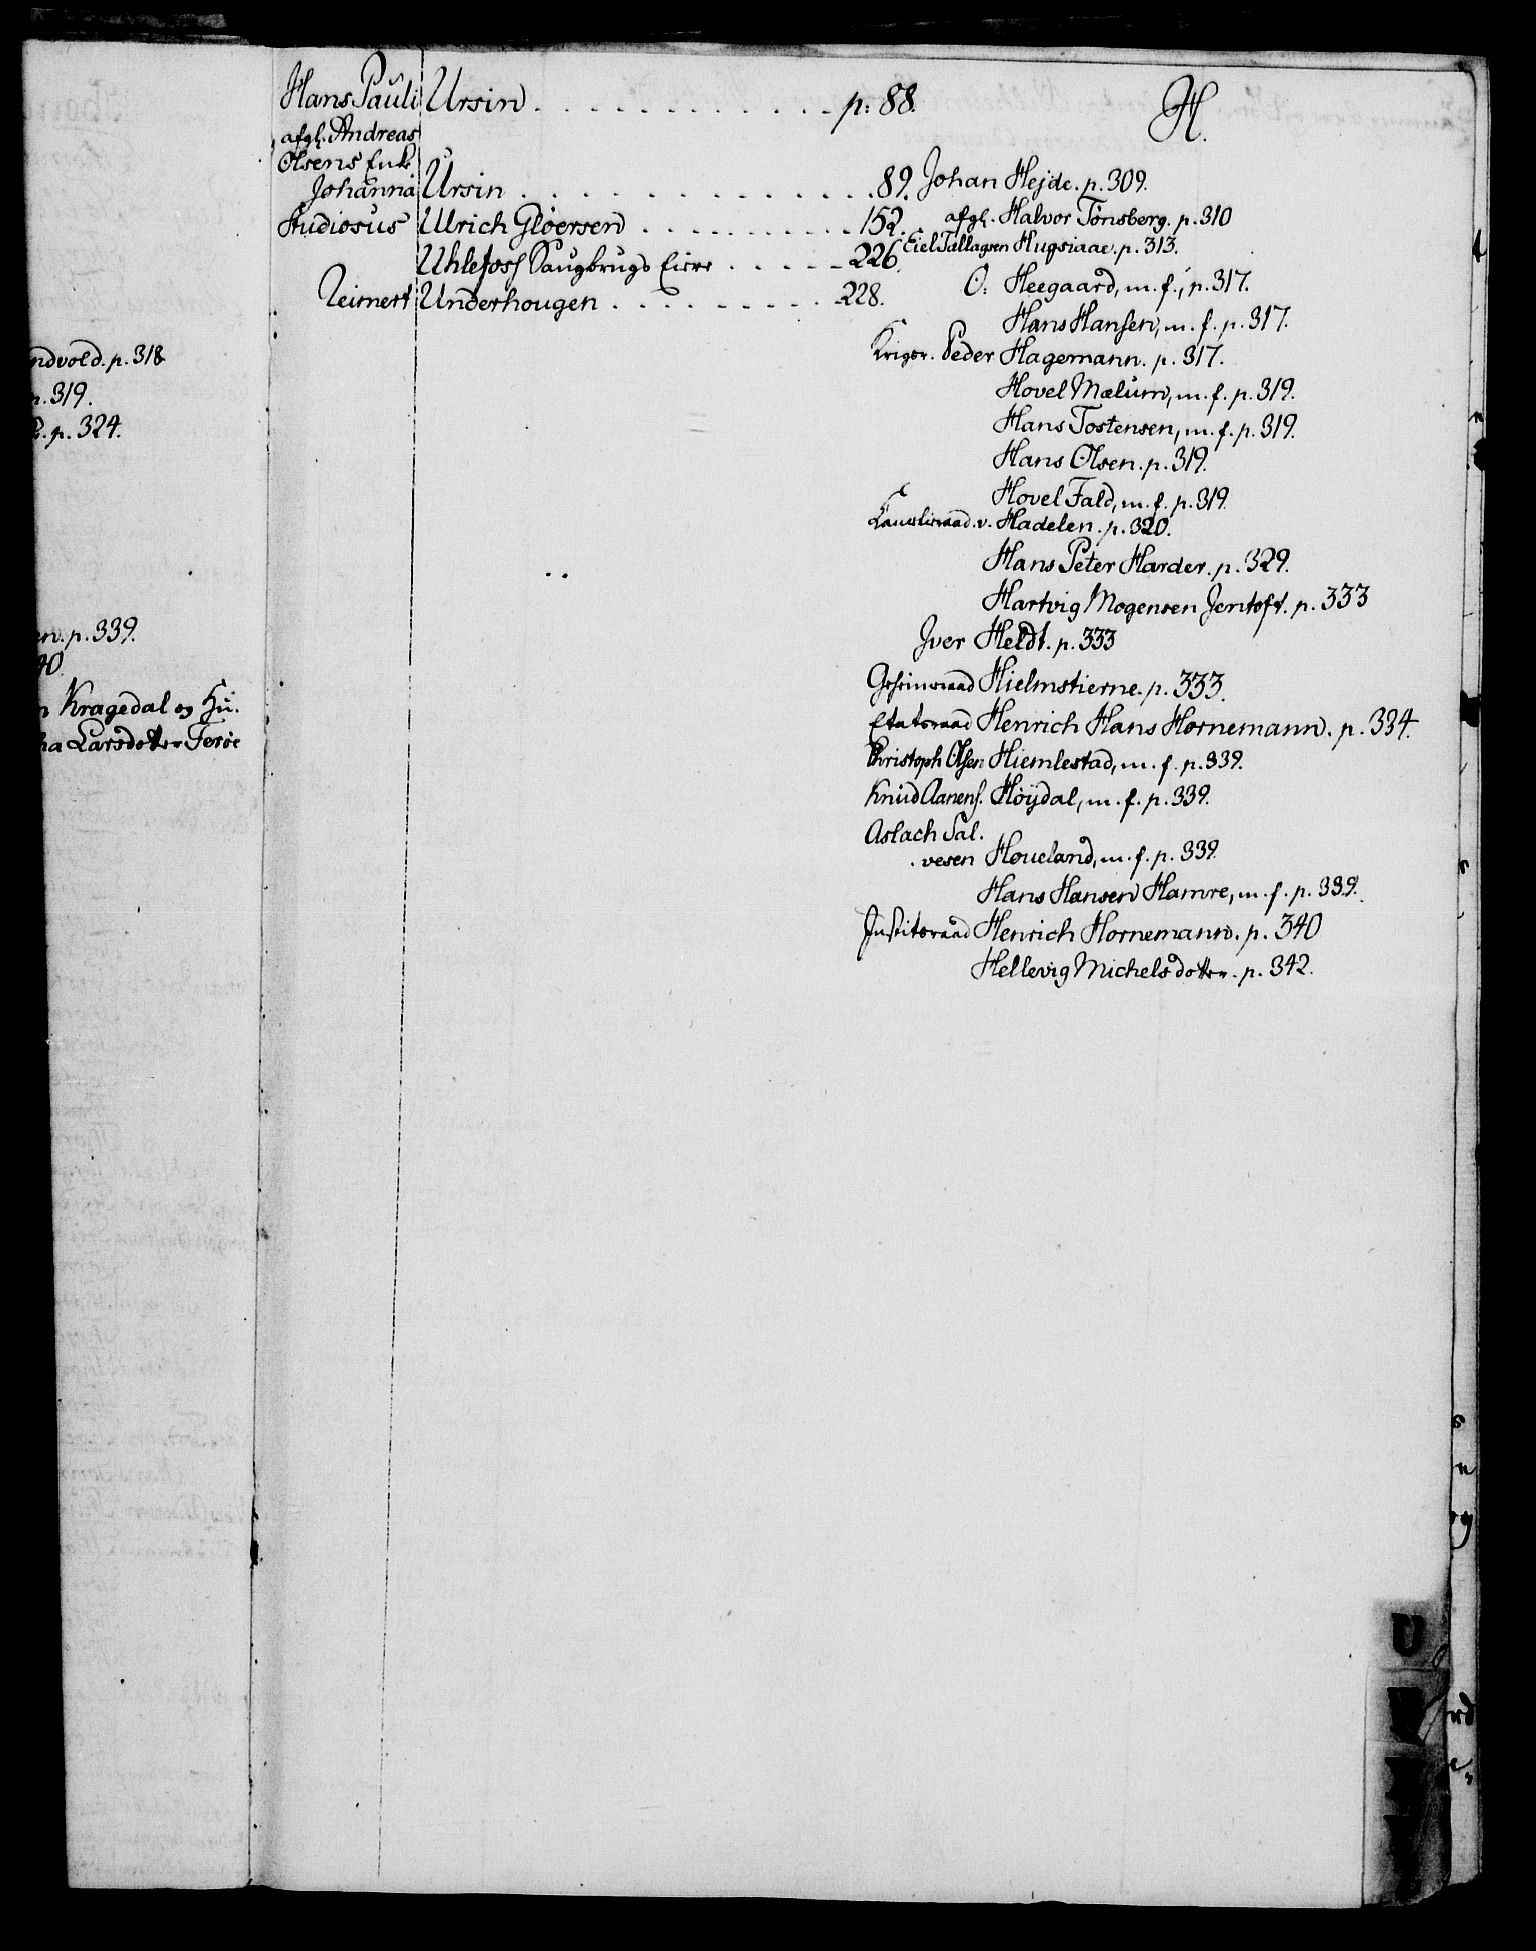 ndvold. p. 318
n. 319.
p. 324.
en. p. 339.
40.
n Kragedal og Hu.
ha Larsdotter Terøe
Hans Pauli Ursin . . . . . . . . . . . . p: 88.
afgl. Andreas
Olsens Enke
Johanna Ursin . . . . . . . . . . . . . . . 89.
Studiosus Ulrich Gløersen . . . . . . . . . . . 152.
Uhlefoss Saugbrugs Eiere . . . . . 226.
Reimert Underhougen . . . . . . . . . . 228.
H.
Johan Hejde. p. 309.
afgl. Halvor Tønsberg. p. 310
Eiel Tallagsen Hugsiaae. p. 313.
O: Heegaard, m. f., p. 317.
Hans Hansen, m. f. p. 317.
Krigsr. Peder Hagemann. p. 317.
Hovel Mælum, m. f. p. 319.
Hans Tostensen, m. f. p. 319.
Hans Olsen. p. 319.
Hovel Fald, m. f. p. 319.
Cancelieraad. v. Hadelen. p. 320.
Hans Peter Harder. p. 329.
Hartvig Mogensen Jentoft. p. 333
Iver Heldt. p. 333
Geheimeraad Hielmstierne. p. 333.
Etatsraad Henrich Hans Hornemann. p. 334.
Christoph Olsen Hiemlestad, m. f. p. 339.
Knud Aanens. Høydal, m. f. p. 339.
Aslach Sal.
vesen Houeland, m. f. p. 339.
Hans Hansen Hamre, m. f. p. 339.
Justitsraad Henrich Hornemann. p. 340
Hellevig Michelsdotter. p. 342.
U